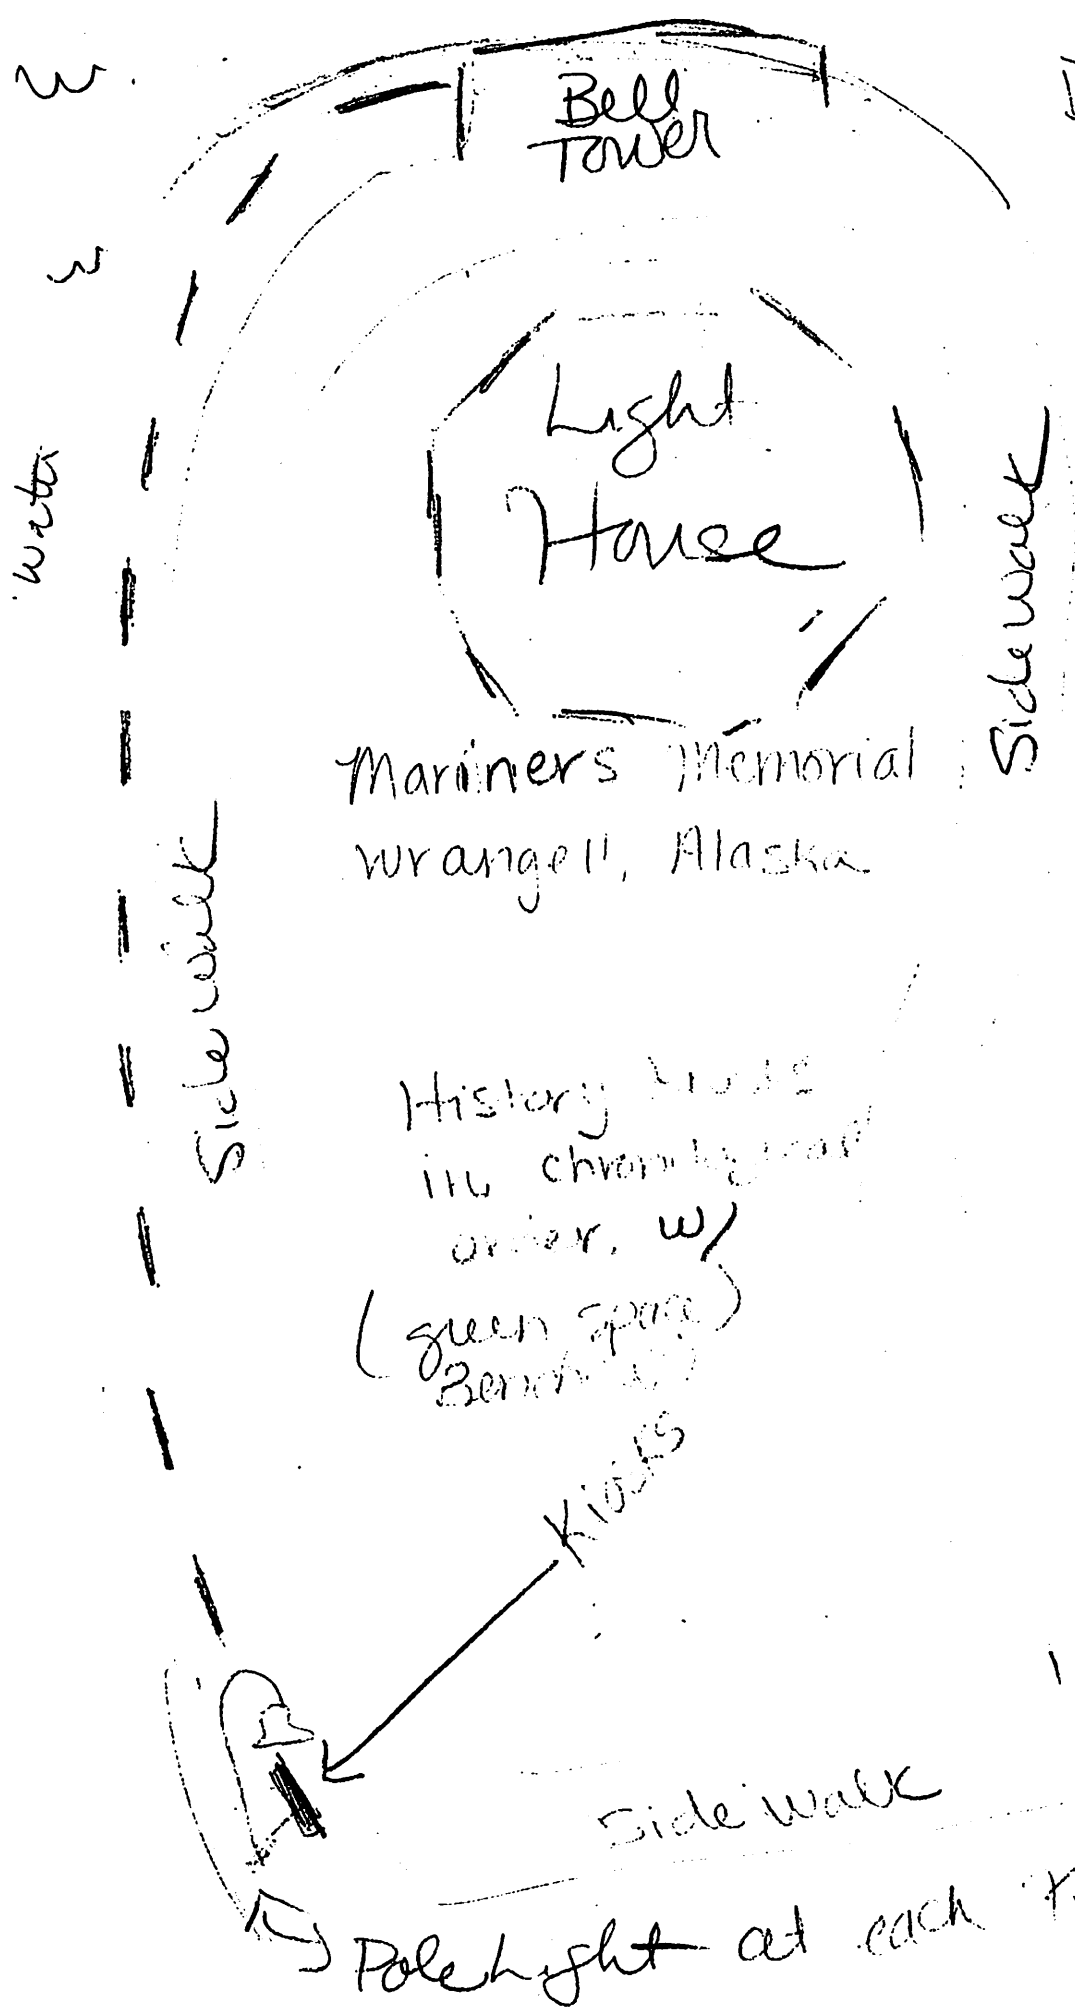 Bell
Tower
Light
House
Water
Sidewalk
Mariners Memorial
Wrangell, Alaska
Sidewalk
History
in chronological
order. w/
(green space)
Kiosks
Sidewalk
Pole Light at each